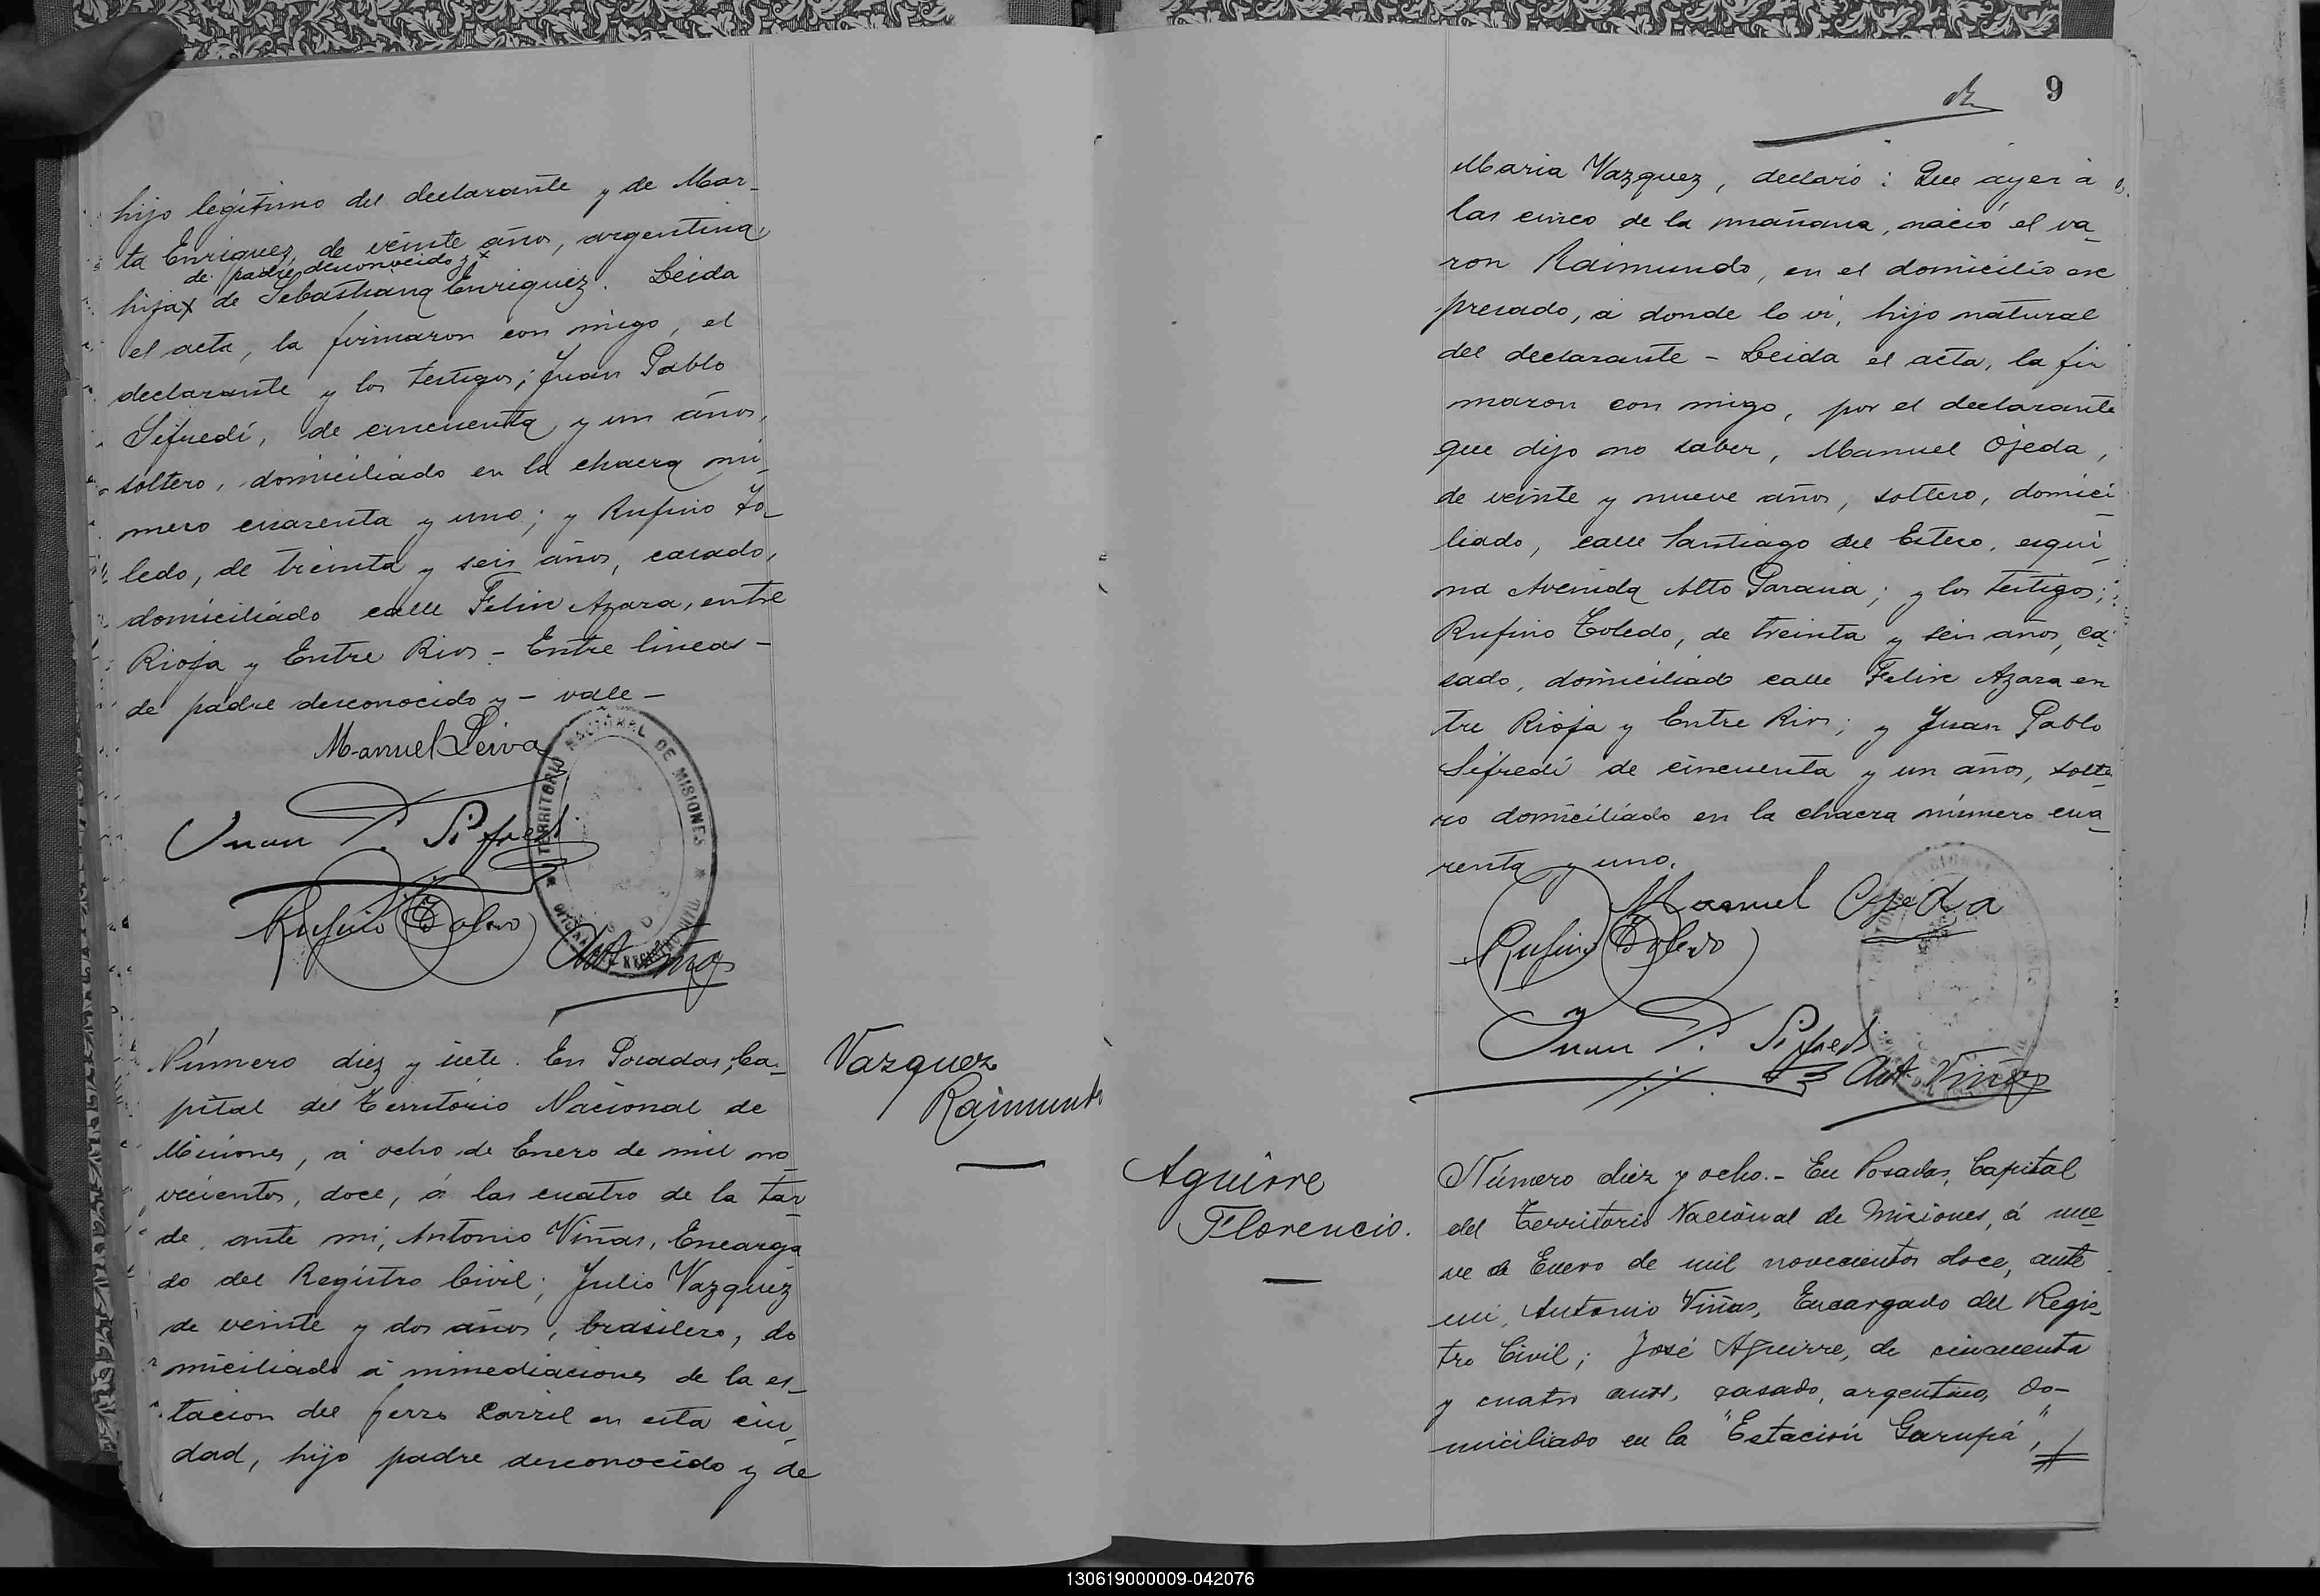 hijo legitimo del declarante y de Mar-
ta Enriquez, de veinte años, argentina,
de padre desconocido y x
hijax de Sebastiana Enriquez. Leida
el acta, la firmaron con migo, el
declarante y los testigos; Juan Pablo
Sifredi, de cincuenta y un años,
soltero, domiciliado en la chacra nú-
mero cuarenta y uno; y Rufino To-
ledo, de treinta y seis años, casado,
domiciliado calle Felix Azara, entre
Rioja y Entre Rios - Entre lineas -
de padre desconocido y - vale -
Manuel Leiva
Juan P. Sifredi
Rufino Toledo
Ant Viñas
TERRITORIO NACIONAL DE MISIONES
Número diez y siete. En Posadas, Ca-
pital del Territorio Nacional de
Misiones, á ocho de Enero de mil no-
vecientos, doce, á las cuatro de la tar
de, ante mi, Antonio Viñas, Encarga
do del Registro Civil; Julio Vazquez
de veinte y dos años, brasilero, do
miciliado á inmediaciones de la es-
tacion del ferro Carril en esta ciu-
dad, hijo padre desconocido y de
Vazquez
Raimundo
9
Maria Vazquez, declaró: Que ayer á
las cinco de la mañana, nació el va-
ron Raimundo, en el domicilio ex
presado, á donde lo vi, hijo natural
del declarante - Leida el acta, la fir
maron con migo, por el declarante
que dijo no saber, Manuel Ojeda,
de veinte y nueve años, soltero, domici
liado, calle Santiago del Estero, esqui-
na Avenida Alto Parana; y los testigos;
Rufino Toledo, de treinta y seis años, ca-
sado, domiciliado calle Felix Azara en
tre Rioja y Entre Rios; y Juan Pablo
Sifredi de cincuenta y un años, solte
ro domiciliado en la chacra número cua-
renta y uno.
Manuel Ojeda
Rufino Toledo
Juan P. Sifredi
Ant. Viñas
Aguirre
Florencio.
Número diez y ocho.- En Posadas, Capital
del Territorio Nacional de Misiones, á nue
ve de Enero de mil novecientos doce, ante
mi, Antonio Viñas, Encargado del Regis-
tro Civil; José Aguirre, de cincuenta
y cuatro años, casado, argentino, do-
miciliado en la "Estación Garupá",
130619000009-042076